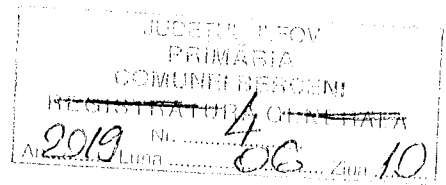 JUDEȚUL ILFOV
PRIMĂRIA
COMUNEI BERCENI
REGISTRATURA GENERALĂ
Nr. 4
An 2019 Luna 06 Ziua 10